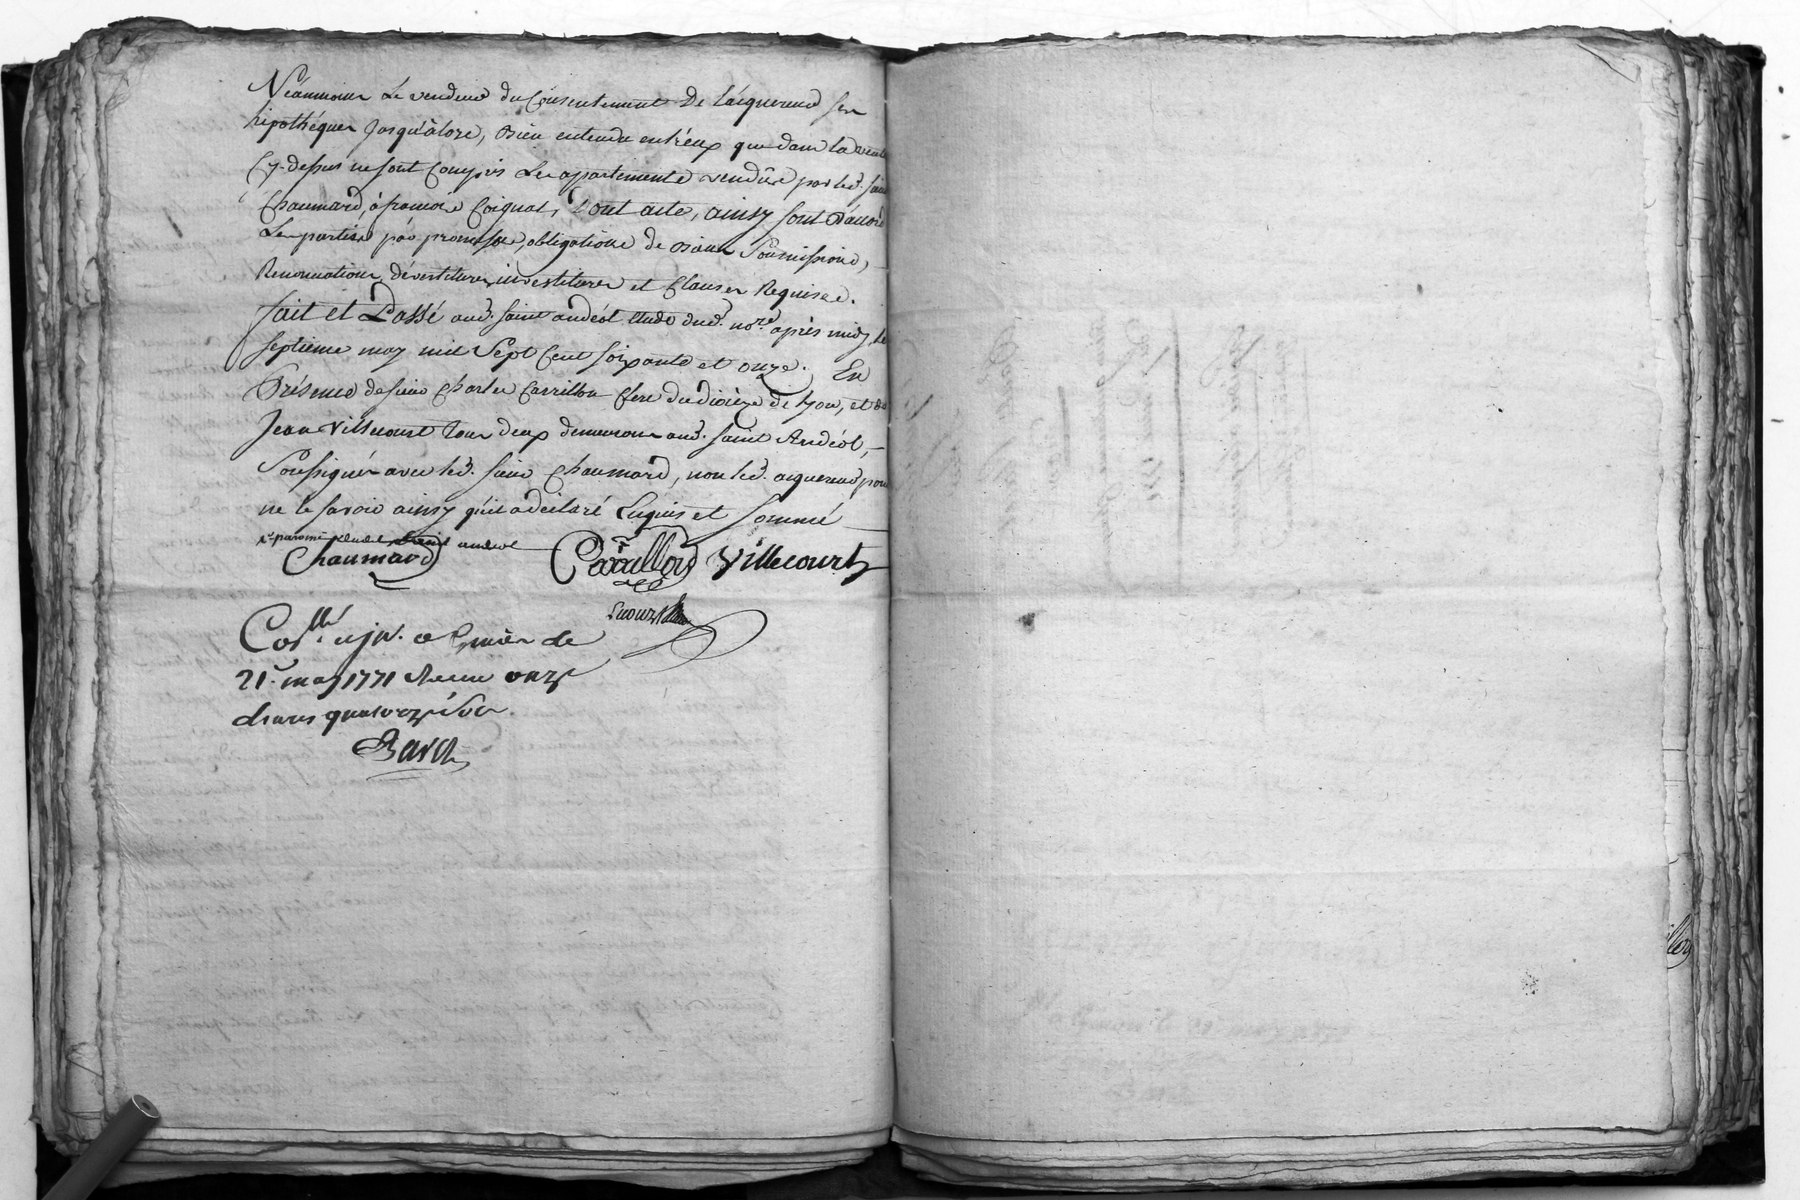 Néanmoins Le vendeur du Consentement De l'acquereur s'en
hipothéquer Jusqu'alors, bien entendu entr'eux que dans la vente
Cy-dessus ne sont Compris Les apartements vendûs par led. sieur
Chaumard, à françois Coignat, Dont acte, ainsy sont D'accord
Les parties par promesses, obligations de Biens Soumissions,
Renonciations, dévestitures, investitures et Clauses Requises.
fait et Passé aud. saint andéol Etude dud. nore. après midy, le
septieme may mil Sept Cent soixante et onze. En
Présence de sieur Charles Carrillon Clerc du diocèze de Lyon, et de
Jean Villecourt tous deux demeurans aud. saint Andéol,
Soussignés avec led. sieur Chaumard, non led. aquereur pour
ne le savoir ainsy qu'il a déclaré Enquis et sommé
Chaumard Carrillon Villecourt
Con.llé
21. may 1771 Receu onze
livres quatorze sols